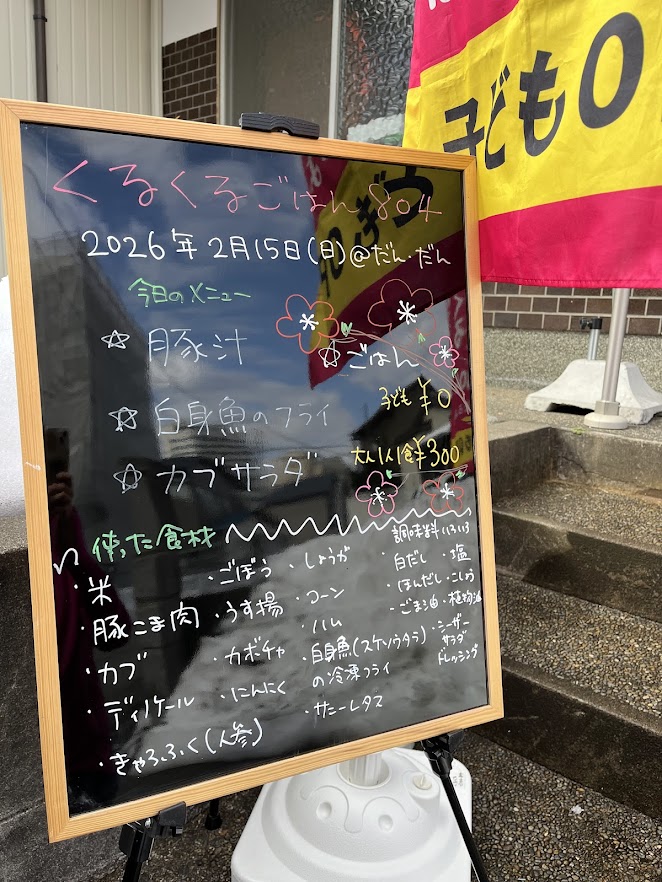 くるくるごはん804
2026年2月15日(日)@だん・だん
今日のメニュー
☆豚汁
☆ごはん
☆白身魚のフライ
☆カブサラダ
子ども¥0
大人1食¥300
使った食材
・米
・豚こま肉
・カブ
・ディノケール
・きゃろふく(人参)
・ごぼう
・うす揚
・カボチャ
・にんにく
・しょうが
・コーン
・ハム
・白身魚(スケソウタラ)
の冷凍フライ
・サニーレタス
調味料いろいろ
・白だし・塩
・ほんだし・こしょう
・ごま油・植物油
・シーザー
サラダ
ドレッシング
子ども0